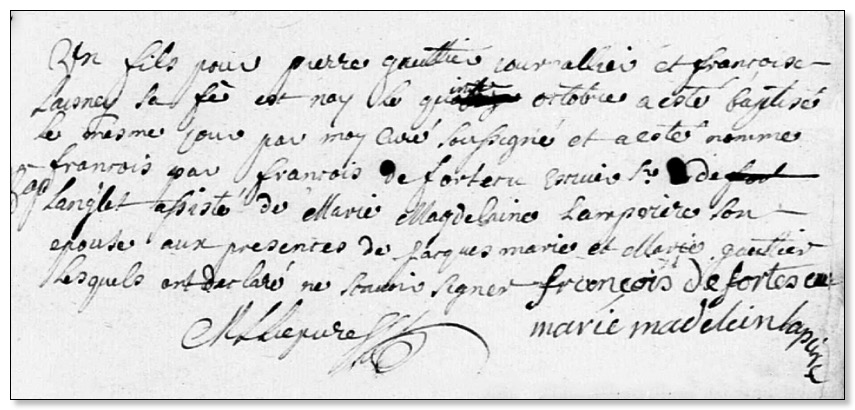 Un fils pour pierre gaultier journallier et françoise
Laisney sa fẽ est nay le quinze octobre a esté baptisé
le mesme jour par moy curé soussigné et a esté nommé
francois par francois de fortecu Escuier Sr de fort
Langlet assisté de Marie Magdelaine Lamperiere son
epouse aux presences de Jacques marie et Marie gaultier
lesquels ont declaré ne scavoir signer françois de fortescu
marie madelein